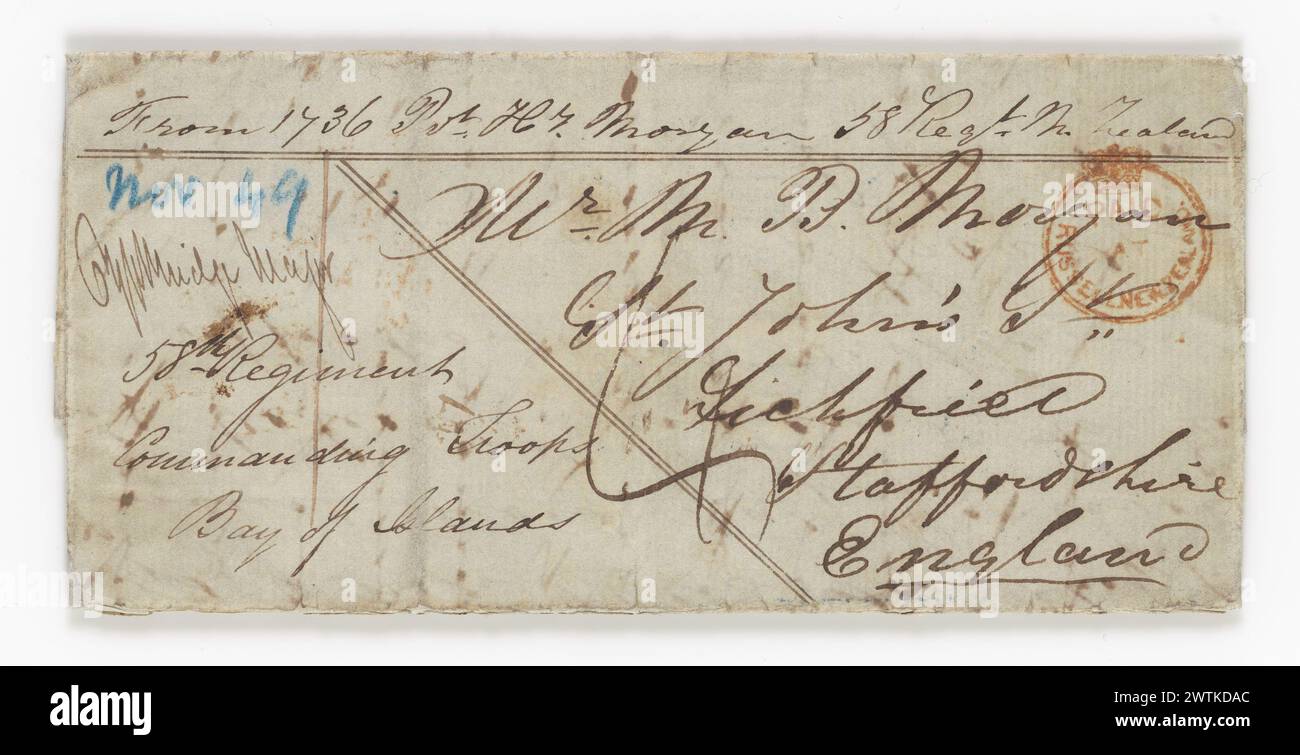 From 1736 Pvt. Hy. Morgan 58 Regt. N. Zealand
Nov 49
Major
58th Regiment
Commanding Troops
Bay of Islands
Mr. M. B. Morgan
St. John's St.
Lichfield
Staffordshire
England
RUSSELL NEW ZEALAND
alamy
Image ID: 2WTKDAC
www.alamy.com